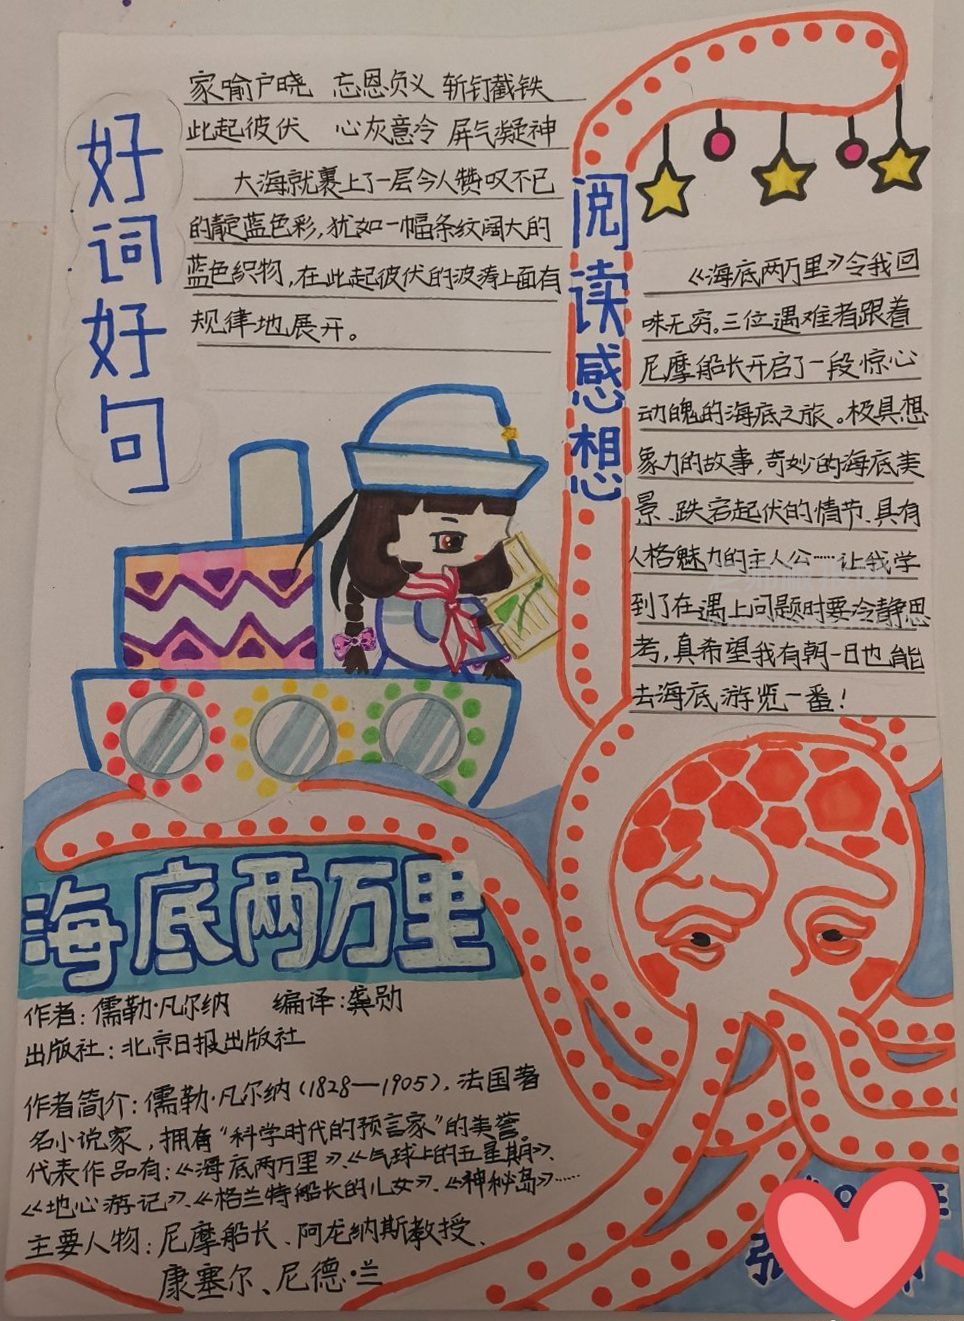 好词好句
家喻户晓 忘恩负义 斩钉截铁
此起彼伏 心灰意冷 屏气凝神
大海就裹上了一层令人赞叹不已
的靛蓝色彩,犹如一幅条纹阔大的
蓝色织物,在此起彼伏的波涛上面有
规律地展开。
阅读感想
《海底两万里》令我回
味无穷。三位遇难者跟着
尼摩船长开启了一段惊心
动魄的海底之旅。极具想
象力的故事,奇妙的海底美
景、跌宕起伏的情节、具有
人格魅力的主人公……让我学
到了在遇上问题时要冷静思
考,真希望我有朝一日也能
去海底游览一番!
海底两万里
作者:儒勒·凡尔纳 编译:龚勋
出版社:北京日报出版社
作者简介:儒勒·凡尔纳(1828—1905),法国著
名小说家,拥有“科学时代的预言家”的美誉。
代表作品有:《海底两万里》、《气球上的五星期》、
《地心游记》、《格兰特船长的儿女》、《神秘岛》……
主要人物:尼摩船长、阿龙纳斯教授、
康塞尔、尼德·兰
张